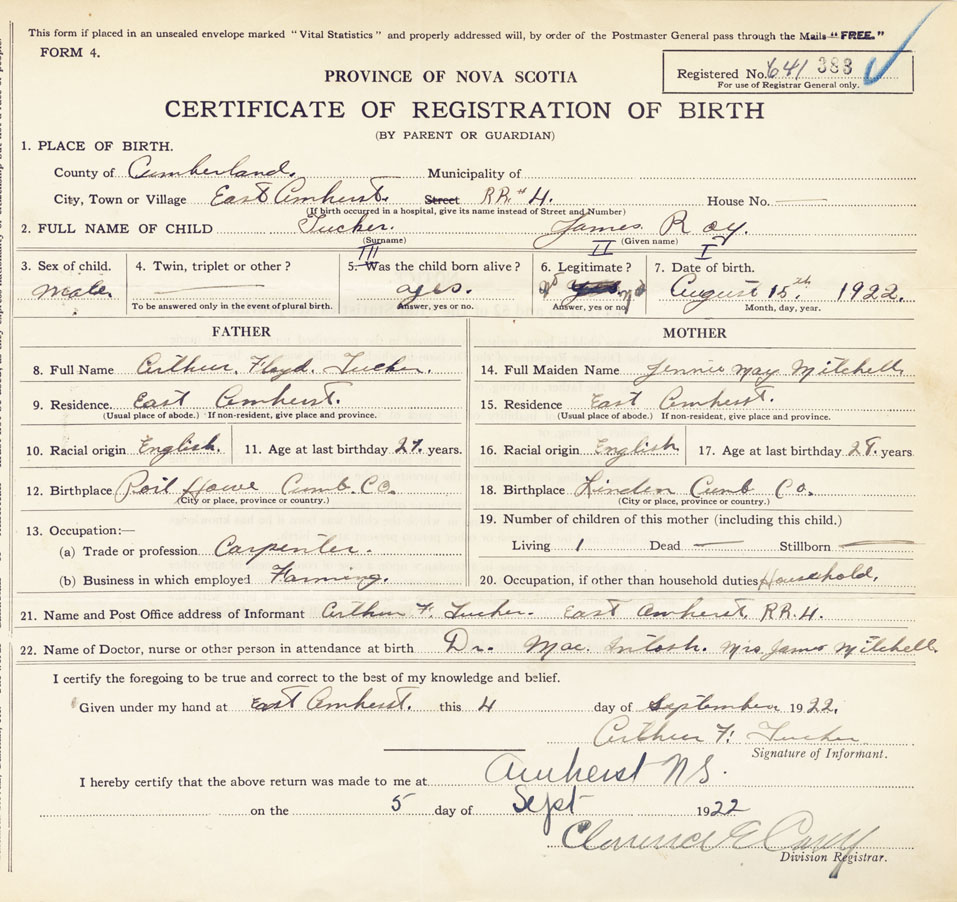 This form if placed in an unsealed envelope marked "Vital Statistics" and properly addressed will, by order of the Postmaster General pass through the Mails "FREE."
FORM 4.
Registered No. 641 383
For use of Registrar General only.
PROVINCE OF NOVA SCOTIA
CERTIFICATE OF REGISTRATION OF BIRTH
(BY PARENT OR GUARDIAN)
1. PLACE OF BIRTH.
County of Cumberland. Municipality of
City, Town or Village East Amherst. Street RR# 4. House No. —
(If birth occurred in a hospital, give its name instead of Street and Number)
2. FULL NAME OF CHILD Tucker. James Roy.
(Surname) (Given name)
III II I
3. Sex of child. 4. Twin, triplet or other? 5. Was the child born alive? 6. Legitimate? 7. Date of birth.
Male. — yes. yes August 15th 1922.
To be answered only in the event of plural birth. Answer, yes or no. Answer, yes or no Month, day, year.
FATHER MOTHER
8. Full Name Arthur. Floyd. Tucker. 14. Full Maiden Name Jennie May Mitchell
9. Residence. East Amherst. 15. Residence East Amherst.
(Usual place of abode.) If non-resident, give place and province. (Usual place of abode.) If non-resident, give place and province.
10. Racial origin English. 11. Age at last birthday 27. years. 16. Racial origin English 17. Age at last birthday 28. years
12. Birthplace Port Howe Cumb. Co. 18. Birthplace Linden Cumb Co.
(City or place, province or country.) (City or place, province or country.)
13. Occupation:— 19. Number of children of this mother (including this child.)
(a) Trade or profession Carpenter. Living 1 Dead — Stillborn —
(b) Business in which employed Farming. 20. Occupation, if other than household duties Household.
21. Name and Post Office address of Informant Arthur F. Tucker. East Amherst, RR. 4.
22. Name of Doctor, nurse or other person in attendance at birth Dr. Mac. Intosh. Mrs. James Mitchell.
I certify the foregoing to be true and correct to the best of my knowledge and belief.
Given under my hand at East Amherst. this 4 day of September 1922.
Arthur F. Tucker
Signature of Informant.
I hereby certify that the above return was made to me at Amherst N S.
on the 5 day of Sept 1922
Clarence E
Division Registrar.